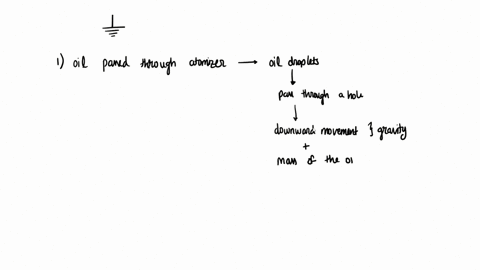 1) oil passed through atomizer → oil droplets
↓
pass through a hole
↓
downward movement } gravity
+
mass of the oi